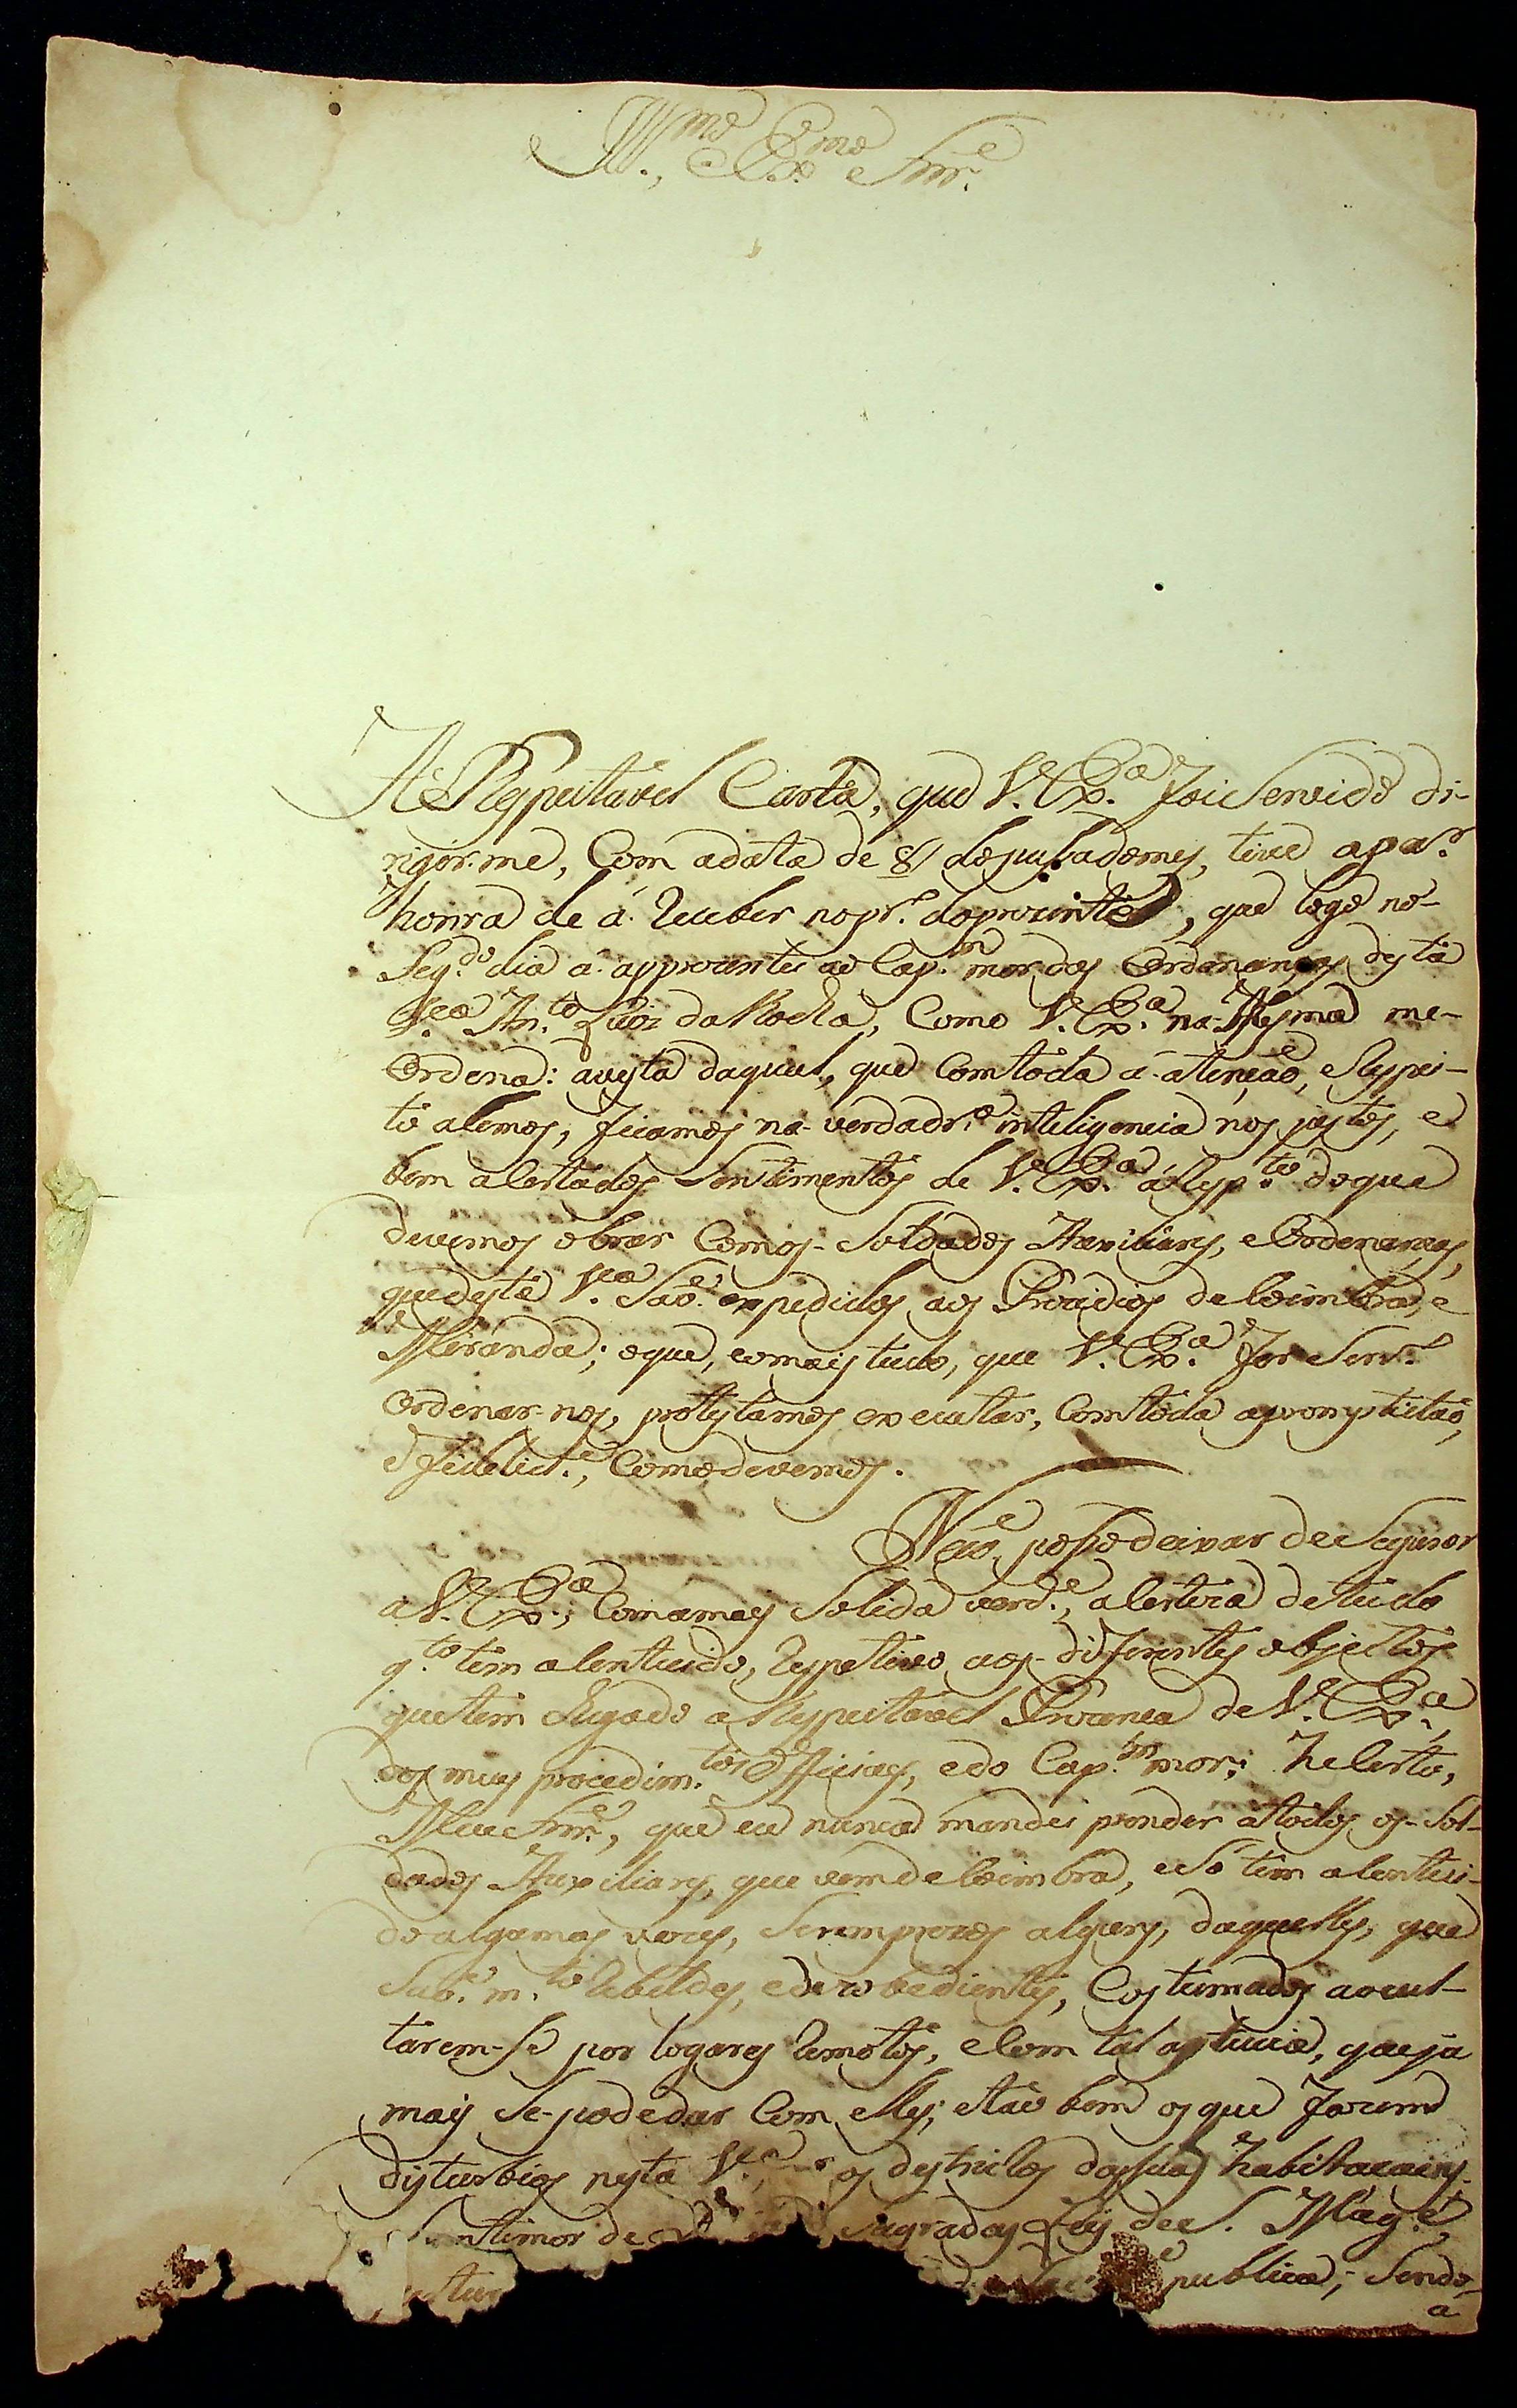 Ill.mo Ex.mo Snr.
A Respeitavel Carta, que V. Ex.a foi Servido di-
rigir-me, Com adata de 8 dopassadomes, tive apar.
honra de á receber nopr. doprezente, que logo nó
Seg.do dia á appresentei ao Cap.m mor das Ordenanças desta
V.a An.to Luiz da Rocha, Como V. Ex.a na Mesma me-
Ordena: avista daqual, que Comtoda á atenção, e Respei-
to a lemos, ficamos na verdadr.a inteligencia nos justos, e
bem acertados Sentimentos de V. Ex.a á Resp.to do que
devemos obrar Comos Soldados Auxiliares, e Ordenanças,
que desta V.a São expedidos aos Prezidios de Coimbra, e
Miranda; o que, eomais tudo, que V. Ex.a for Serv.
Ordenar-nos, protestamos executar, Comtoda apromptidão,
e fidelid.e, Comodevemos.
Não posso deixar de Segurar
a V. Ex.a, Comamais Solida verd.e, a Certeza detudo
q.to tem a Contecido, respetivo aos diferentes objectos
quetem Chegado a Respeitavel Prezença de V. Ex.a,
dos meus procedim.tos Officiaes, e do Cap.m mor; he Certo,
Meu Snr., que eu nunca mandei prender átodos os Sol-
dados Auxiliares, que vem de Coimbra, e Só tem a Conteci-
do algumas vezes, Serem prezos alguns, daquelles, que
São m.to rebeldes, e dezobedientes, Costumados aocul-
tarem-se por logares remotos, e Com tal astucia, que ja
mais Se podedar Com elles; e tão bem os que fazem
disturbios nesta V.a os destrictos dassuas habitaçoens
Sem timor de Sagradas Leis de S. Mag.e,
publica; Sendo
a